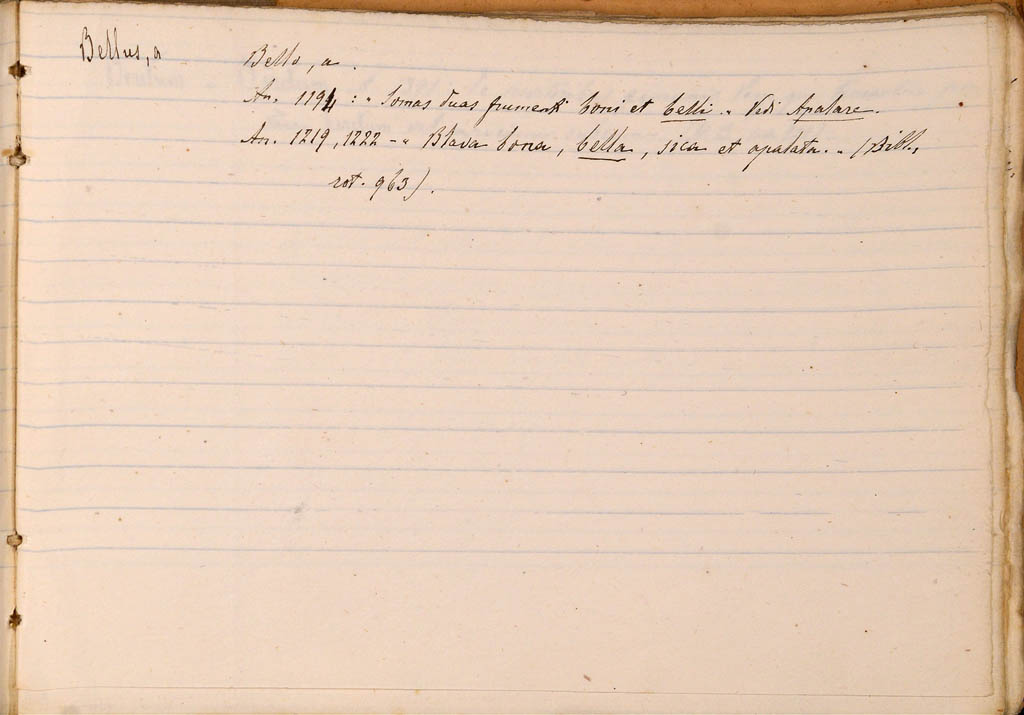 Bellus, a
Bello, a.
An. 1194 : " Somas duas frumenti boni et belli. " Vedi Apalare.
An. 1219, 1222 - " Blava bona, bella, sica et apalata. " (Bibl.,
rot. 963).